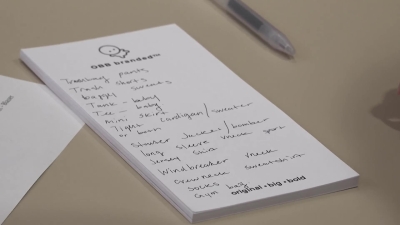 OBB branded™
Tracking pants
Trash shorts
baggy sweats
Tank - baby
Tee - baby
mini skirt
Tight cardigan/sweater
or boot
Jacket/bomber
long sleeve mesh
Jersey skirt
Windbreaker mesh
Crewneck sweatshirt
Socks
Gym bag
original+big+bold